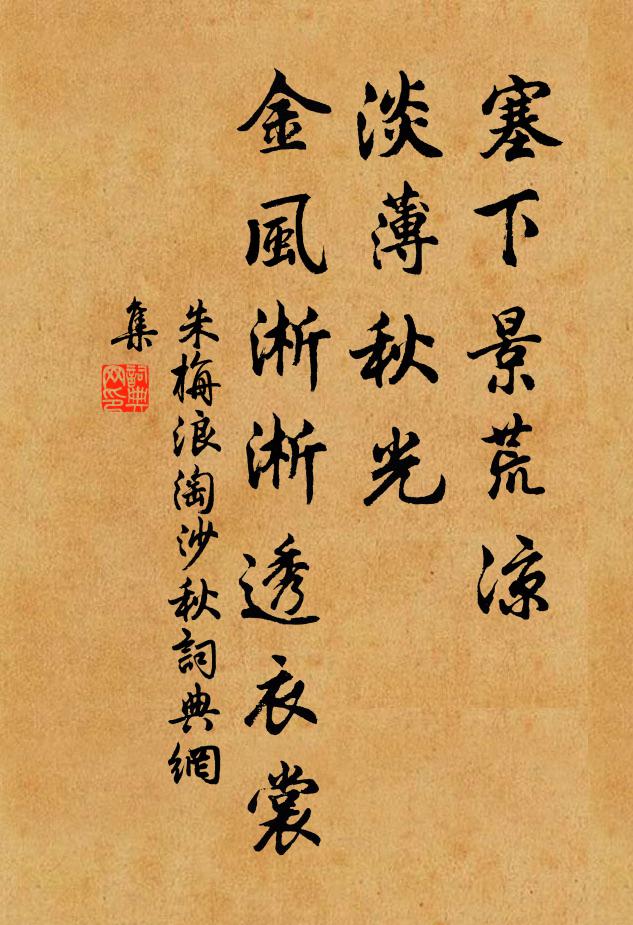 塞下景荒凉
淡薄秋光
金風淅淅透衣裳
朱梅浪淘沙秋詞典網
集
詞典
网印